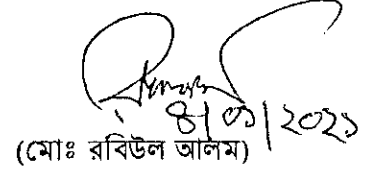 ৪/০১/২০২১
(মোঃ রবিউল আলম)